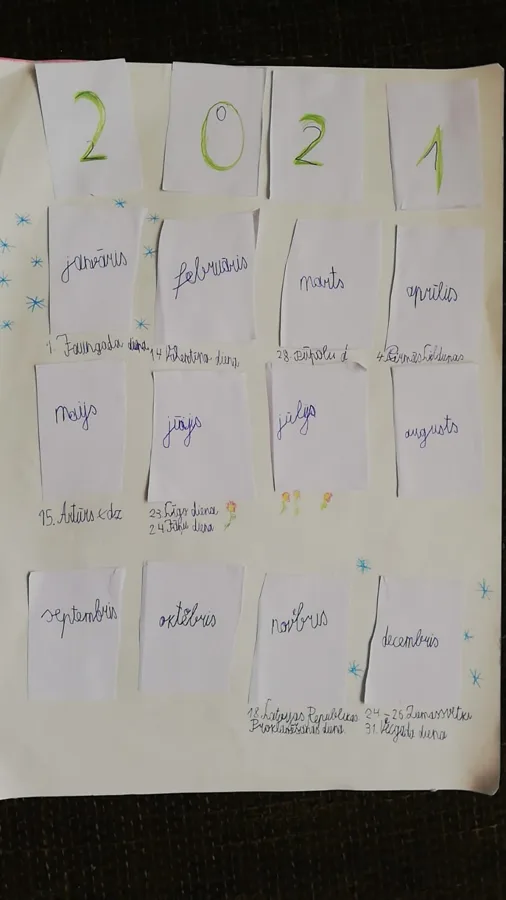 2 0 2 1
janvāris februāris marts aprīlis
1. Jaungada diena 14. diena 28. Pūpolu d 4.
maijs jūijs jūlijs augusts
15. Artūrs dz 23. Līgo diena
24. Jāņu diena
septembris oktōbris decembris
18. Latvijas Republikas 24.-26. Ziemassvētki
Proklamēšanas diena 31. Vecgada diena